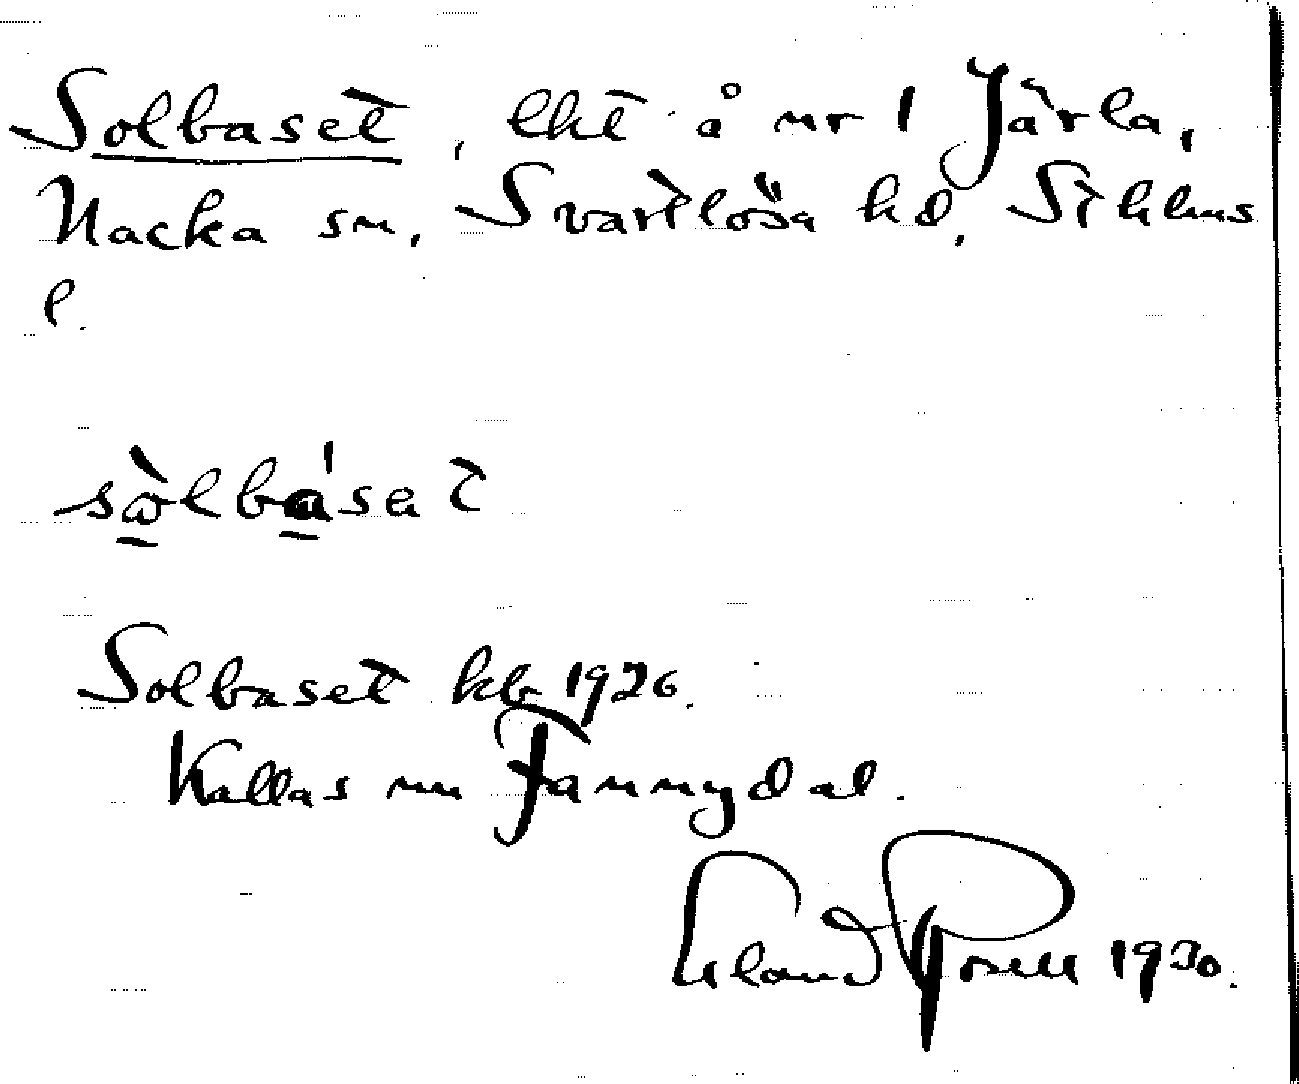 Solbaset, lht å nr 1 Järla,
Nacka sn, Svartlösa hd, Sthlms
l.
sòlbásat
Solbaset kb 1926.
Kallas nu Fannydal.
Erland Rosell 1930.